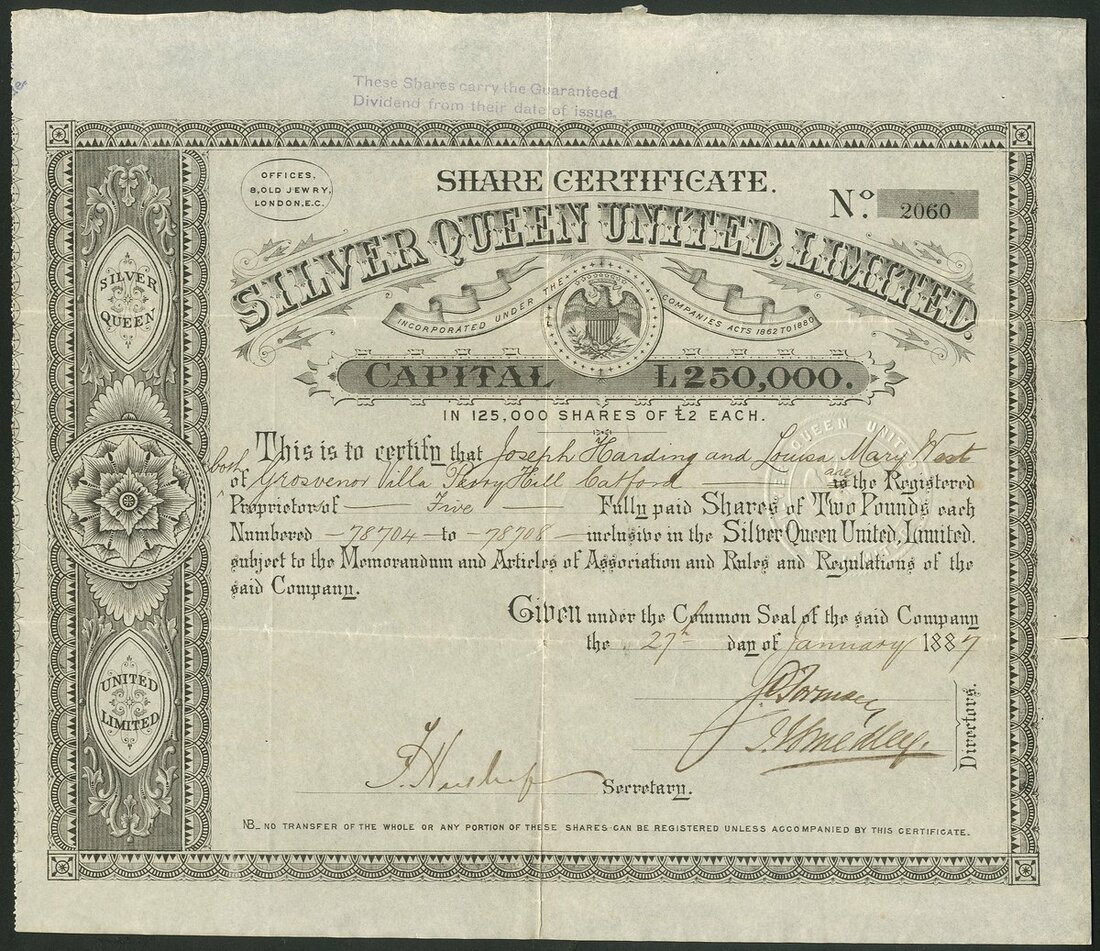 These Shares carry the Guaranteed
Dividend from their date of issue.
OFFICES.
8, OLD JEWRY,
LONDON, E.C.
SHARE CERTIFICATE.
No. 2060
SILVER QUEEN UNITED, LIMITED.
INCORPORATED UNDER THE COMPANIES ACTS 1862 TO 1880
CAPITAL £250,000.
IN 125,000 SHARES OF £2 EACH.
This is to certify that Joseph Harding and Louisa Mary West
both
of Grosvenor Villa Perry Hill Catford are is the Registered
Proprietor of Five Fully paid Shares of Two Pounds each
Numbered 78704 to 78708 inclusive in the Silver Queen United, Limited.
subject to the Memorandum and Articles of Association and Rules and Regulations of the
said Company.
Given under the Common Seal of the said Company
the 27th day of January 1887
Directors.
Secretary.
NB_ NO TRANSFER OF THE WHOLE OR ANY PORTION OF THESE SHARES CAN BE REGISTERED UNLESS ACCOMPANIED BY THIS CERTIFICATE.
SILVER
QUEEN
UNITED
LIMITED